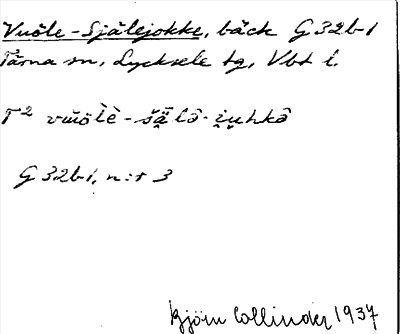 Vuöle-Själejokke, bäck G 32b-1
Tärna sn, Lycksele tg, Vbt l.
T² vŭölè̀-šǟ̭lō-i̭ṷhkō
G 32b-1, n:r 3
Björn Collinder 1937